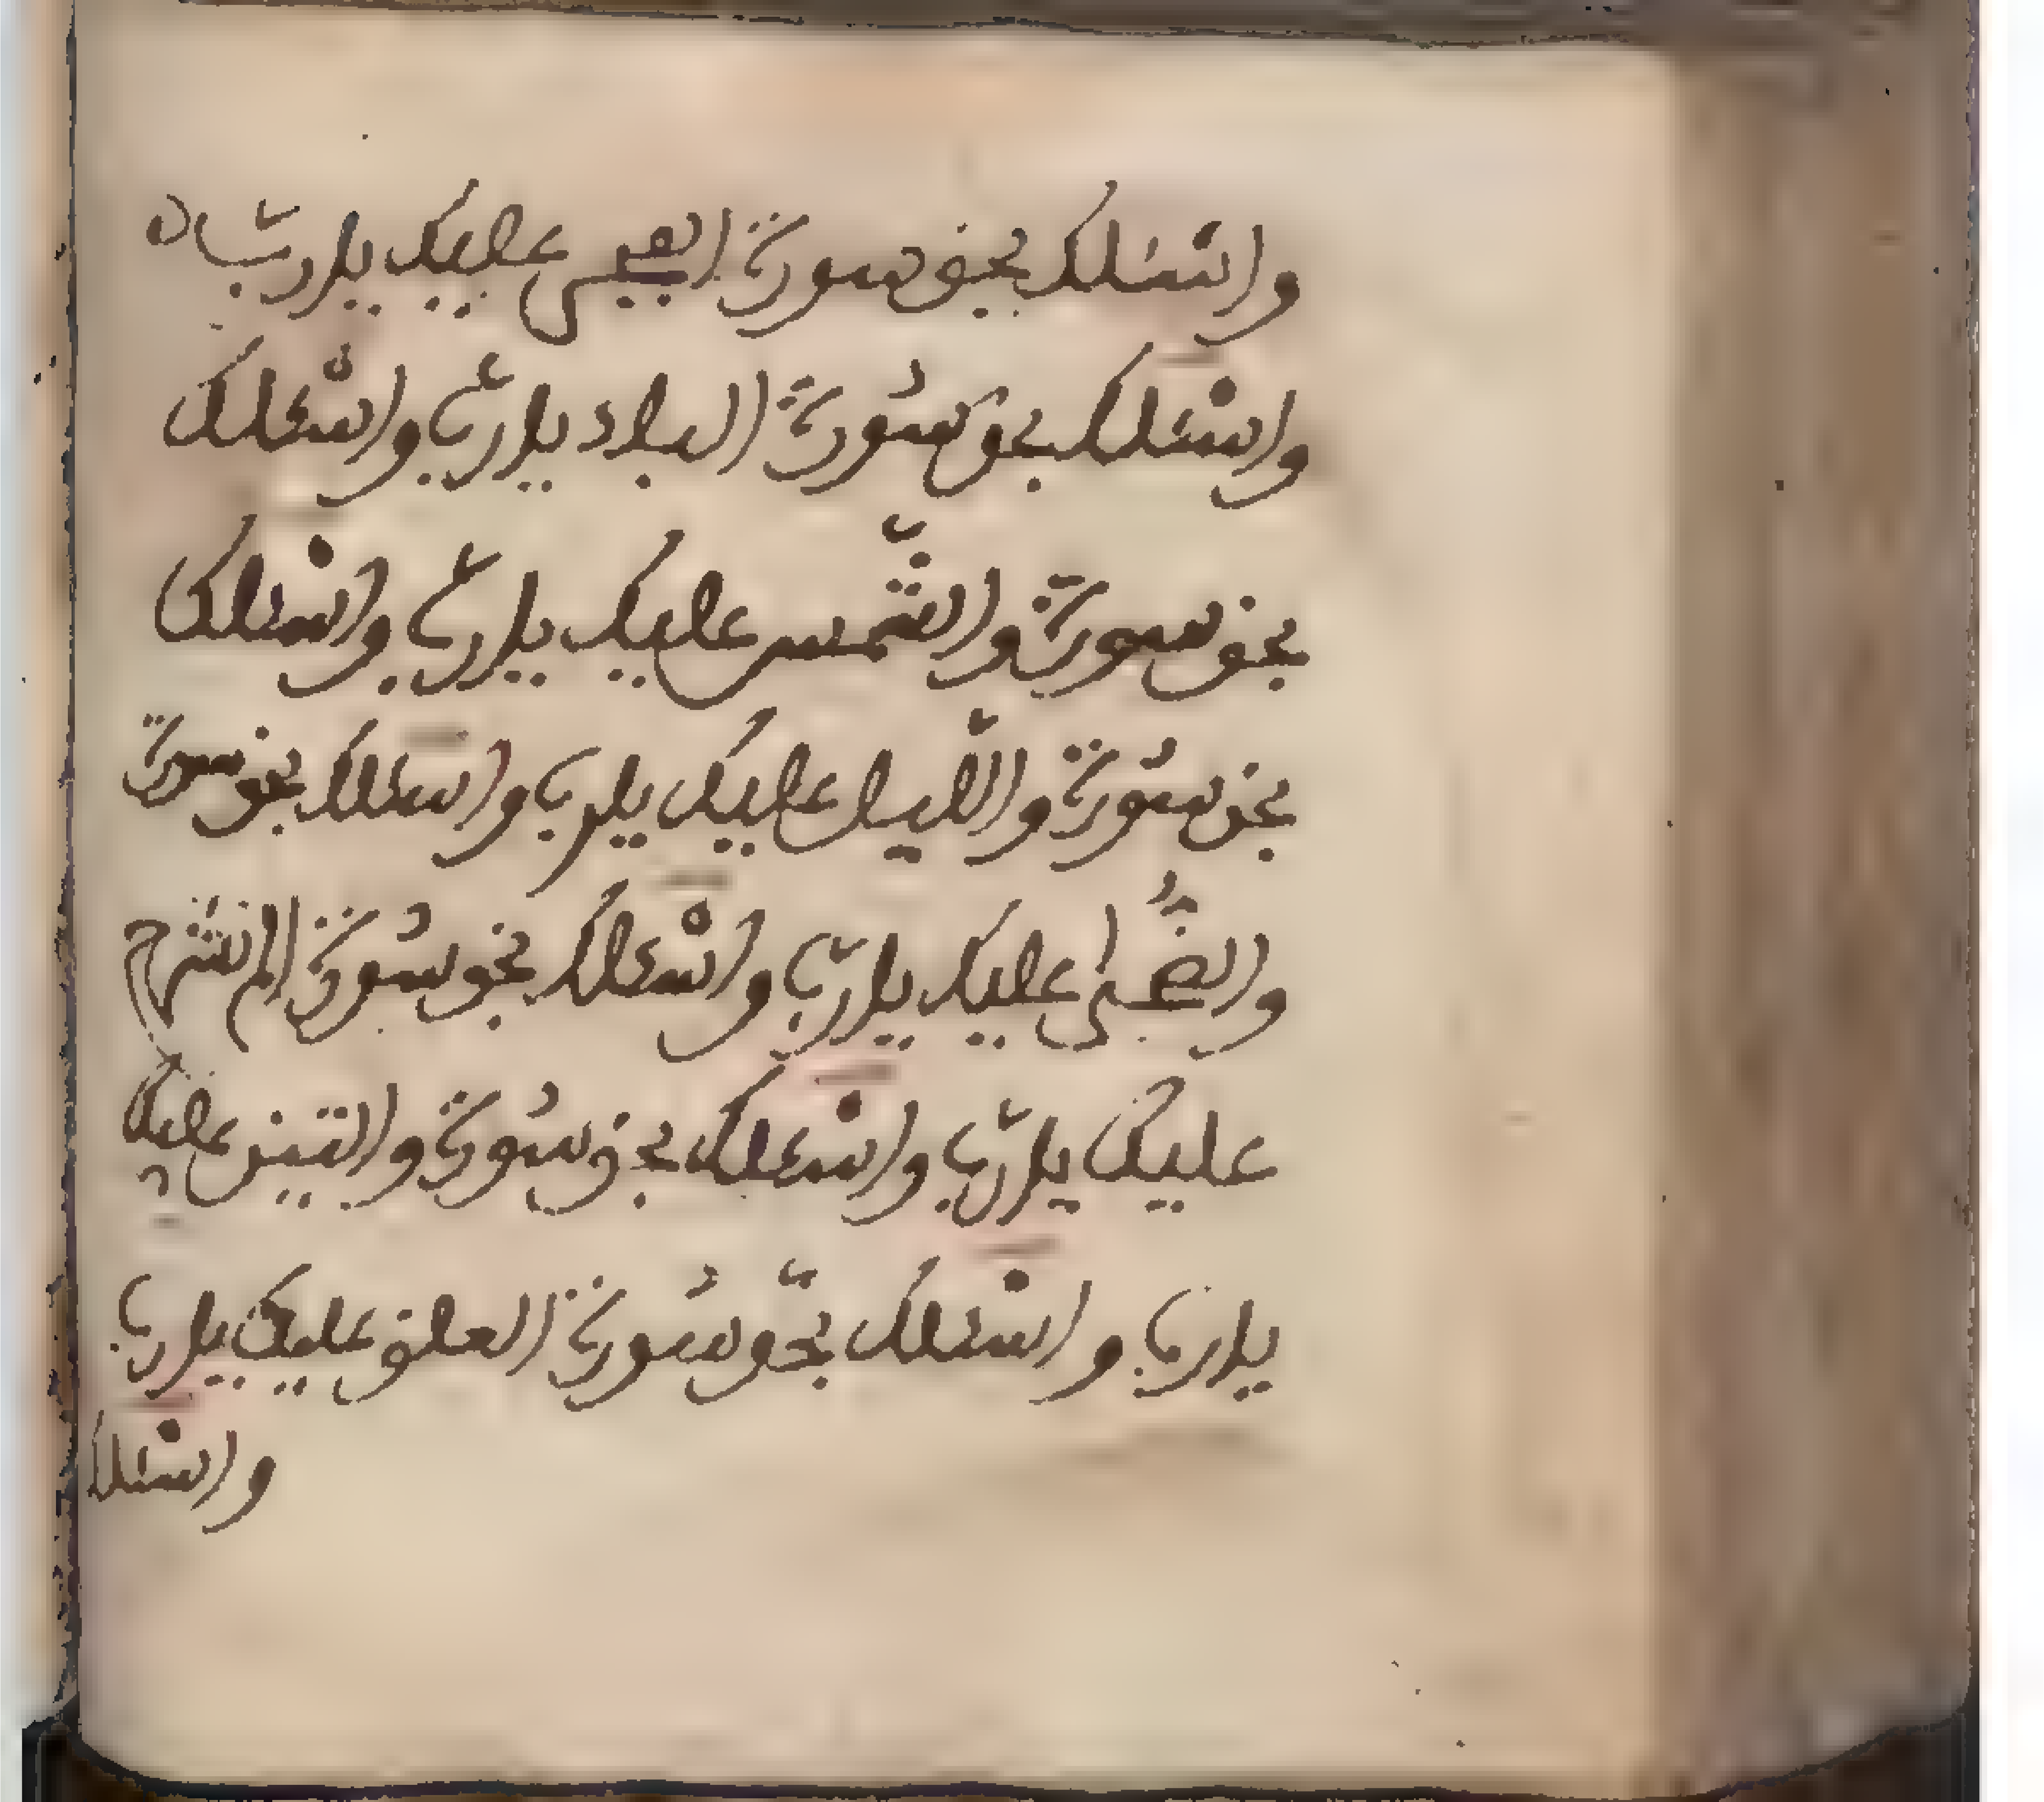 واسئلك بحق سورة الفجر عليك يا رباه
واسئلك بحق سورة البلاد يا رب واسئلك
بحق سورة والشمس عليك يا رب واسئلك
بحق سورة والليل عليك يا رب واسئلك بحق سورة
والضحى عليك يا رب واسئلك بحق سورة الم نشرح
عليك يا رب واسئلك بحق سورة والتين عليك
يا رب واسئلك بحق سورة العلق عليك يا رب
واسئلك